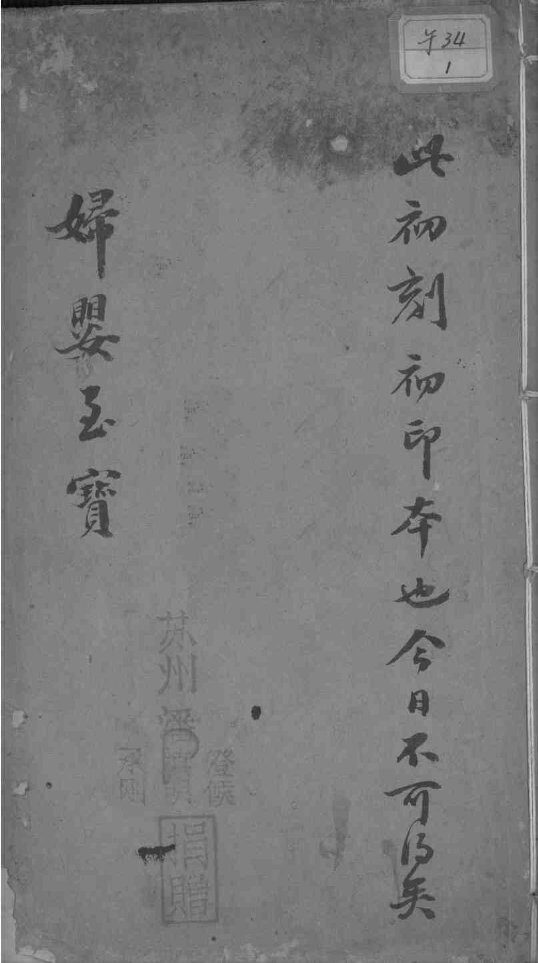 午34
1
此初刻初印本也今日不可得矣
婦嬰至寶
苏州潘
捐贈